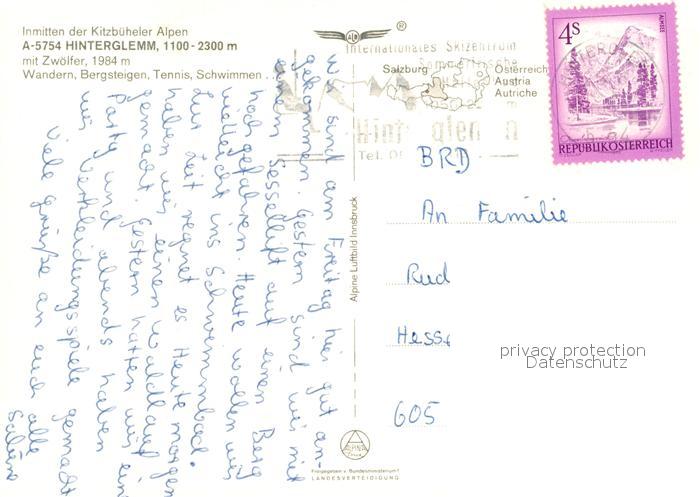 Inmitten der Kitzbüheler Alpen
A-5754 HINTERGLEMM, 1100-2300 m
mit Zwölfer, 1984 m
Wandern, Bergsteigen, Tennis, Schwimmen . . .
Wir sind am Freitag hier gut an-
gekommen. Gestern sind wir mit
einem Sessellift auf einen Berg
hochgefahren. Heute wollen wir
vielleicht ins Schwimmbad.
Zur Zeit regnet es. Heute morgen
haben wir einen Waldlauf
gemacht. Gestern hatten wir ein
Party und abends haben
wir Verkleidungsspiele gemacht
Viele Grüße an euch alle
Alpine Luftbild Innsbruck
Internationales Skizentrum
Sommerfrische
Salzburg
Österreich
Austria
Autriche
Hinterglemm
Tel.
4S
ALMSEE
REPUBLIK ÖSTERREICH
BRD
An Familie
Rud
Hess
605
privacy protection
Datenschutz
ALPINE
Freigegeben v. Bundesministerium f.
LANDESVERTEIDIGUNG